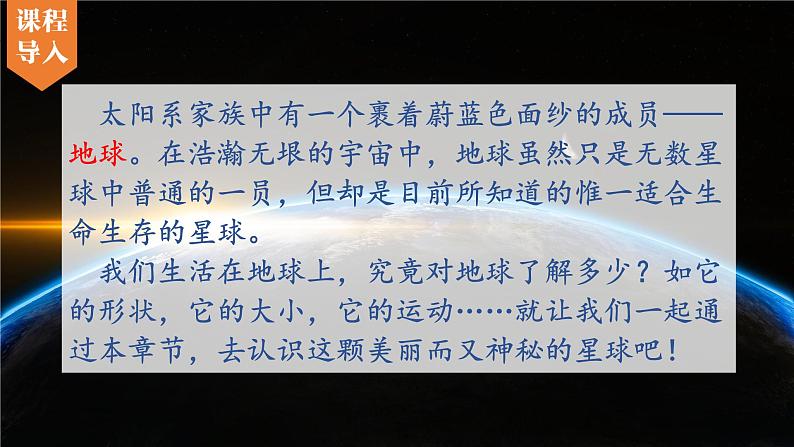 课程
导入
太阳系家族中有一个裹着蔚蓝色面纱的成员——
地球。在浩瀚无垠的宇宙中，地球虽然只是无数星
球中普通的一员，但却是目前所知道的惟一适合生
命生存的星球。
我们生活在地球上，究竟对地球了解多少？如它
的形状，它的大小，它的运动……就让我们一起通
过本章节，去认识这颗美丽而又神秘的星球吧！